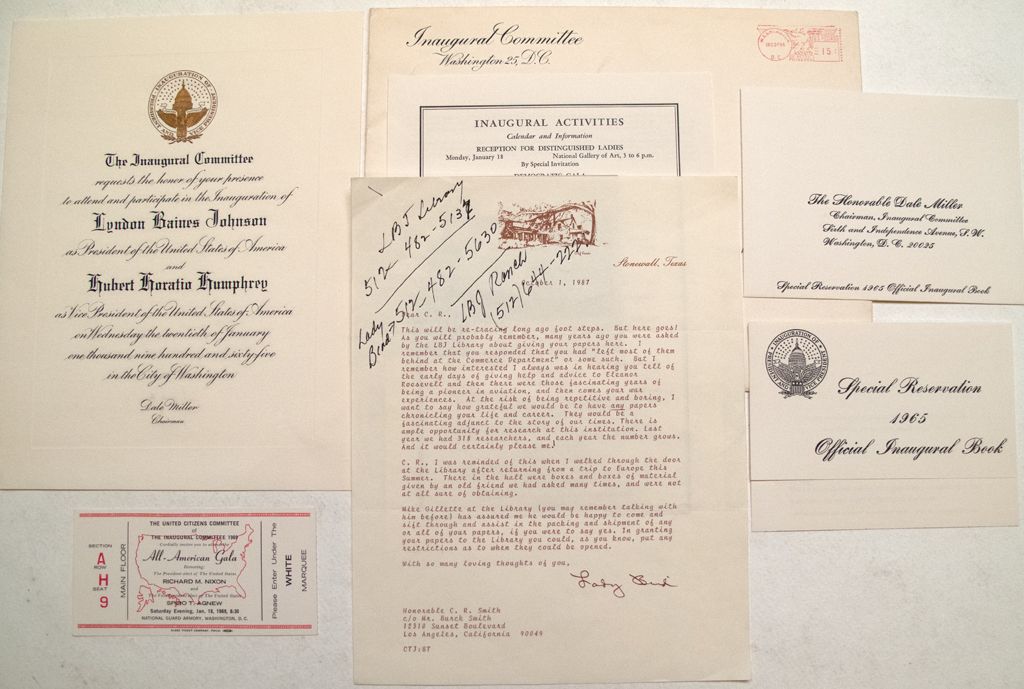 INAUGURATION OF
PRESIDENT AND VICE PRESIDENT
The Inaugural Committee
requests the honor of your presence
to attend and participate in the Inauguration of
Lyndon Baines Johnson
as President of the United States of America
and
Hubert Horatio Humphrey
as Vice President of the United States of America
on Wednesday the twentieth of January
one thousand nine hundred and sixty five
in the City of Washington
Dale Miller
Chairman
Inaugural Committee
Washington 25, D.C.
15
INAUGURAL ACTIVITIES
Calendar and Information
RECEPTION FOR DISTINGUISHED LADIES
Monday, January 18 National Gallery of Art, 3 to 6 p.m.
By Special Invitation
DEMOCRATIC GALA
The Honorable Dale Miller
Chairman, Inaugural Committee
Sixth and Independence Avenue, S.W.
Washington, D.C. 20025
Special Reservation 1965 Official Inaugural Book
Special Reservation
1965
Official Inaugural Book
LBJ Library
512- 482-5137
Lady Bird → 512-482-5630
LBJ Ranch
(512) 644-222
Stonewall, Texas
October 1, 1987
Dear C. R.,
This will be re-tracing long ago foot steps. But here goes!
As you will probably remember, many years ago you were asked
by the LBJ Library about giving your papers here. I
remember that you responded that you had "left most of them
behind at the Commerce Department" or some such. But I
remember how interested I always was in hearing you tell of
the early days of giving help and advice to Eleanor
Roosevelt and then there were those fascinating years of
being a pioneer in aviation, and then comes your war
experiences. At the risk of being repetitive and boring, I
want to say how grateful we would be to have any papers
chronicling your life and career. They would be a
fascinating adjunct to the story of our times. There is
ample opportunity for research at this institution. Last
year we had 318 researchers, and each year the number grows.
And it would certainly please me!
C. R., I was reminded of this when I walked through the door
at the Library after returning from a trip to Europe this
Summer. There in the hall were boxes and boxes of material
given by an old friend we had asked many times, and were not
at all sure of obtaining.
Mike Gillette at the Library (you may remember talking with
him before) has assured me he would be happy to come and
sift through and assist in the packing and shipment of any
or all of your papers, if you were to say yes. In granting
your papers to the Library you could, as you know, put any
restrictions as to when they could be opened.
With so many loving thoughts of you,
Lady Bird
Honorable C. R. Smith
c/o Mr. Burck Smith
12318 Sunset Boulevard
Los Angeles, California 90049
CTJ:BT
SECTION
A
ROW
H
SEAT
9
MAIN FLOOR
THE UNITED CITIZENS COMMITTEE
of
THE INAUGURAL COMMITTEE 1969
Cordially invites you to attend
All-American Gala
Honoring
The President-elect of The United States
RICHARD M. NIXON
and
The Vice President-elect of The United States
SPIRO T. AGNEW
Saturday Evening, Jan. 18, 1969, 8:30
NATIONAL GUARD ARMORY, WASHINGTON, D.C.
Please Enter Under The
WHITE
MARQUEE